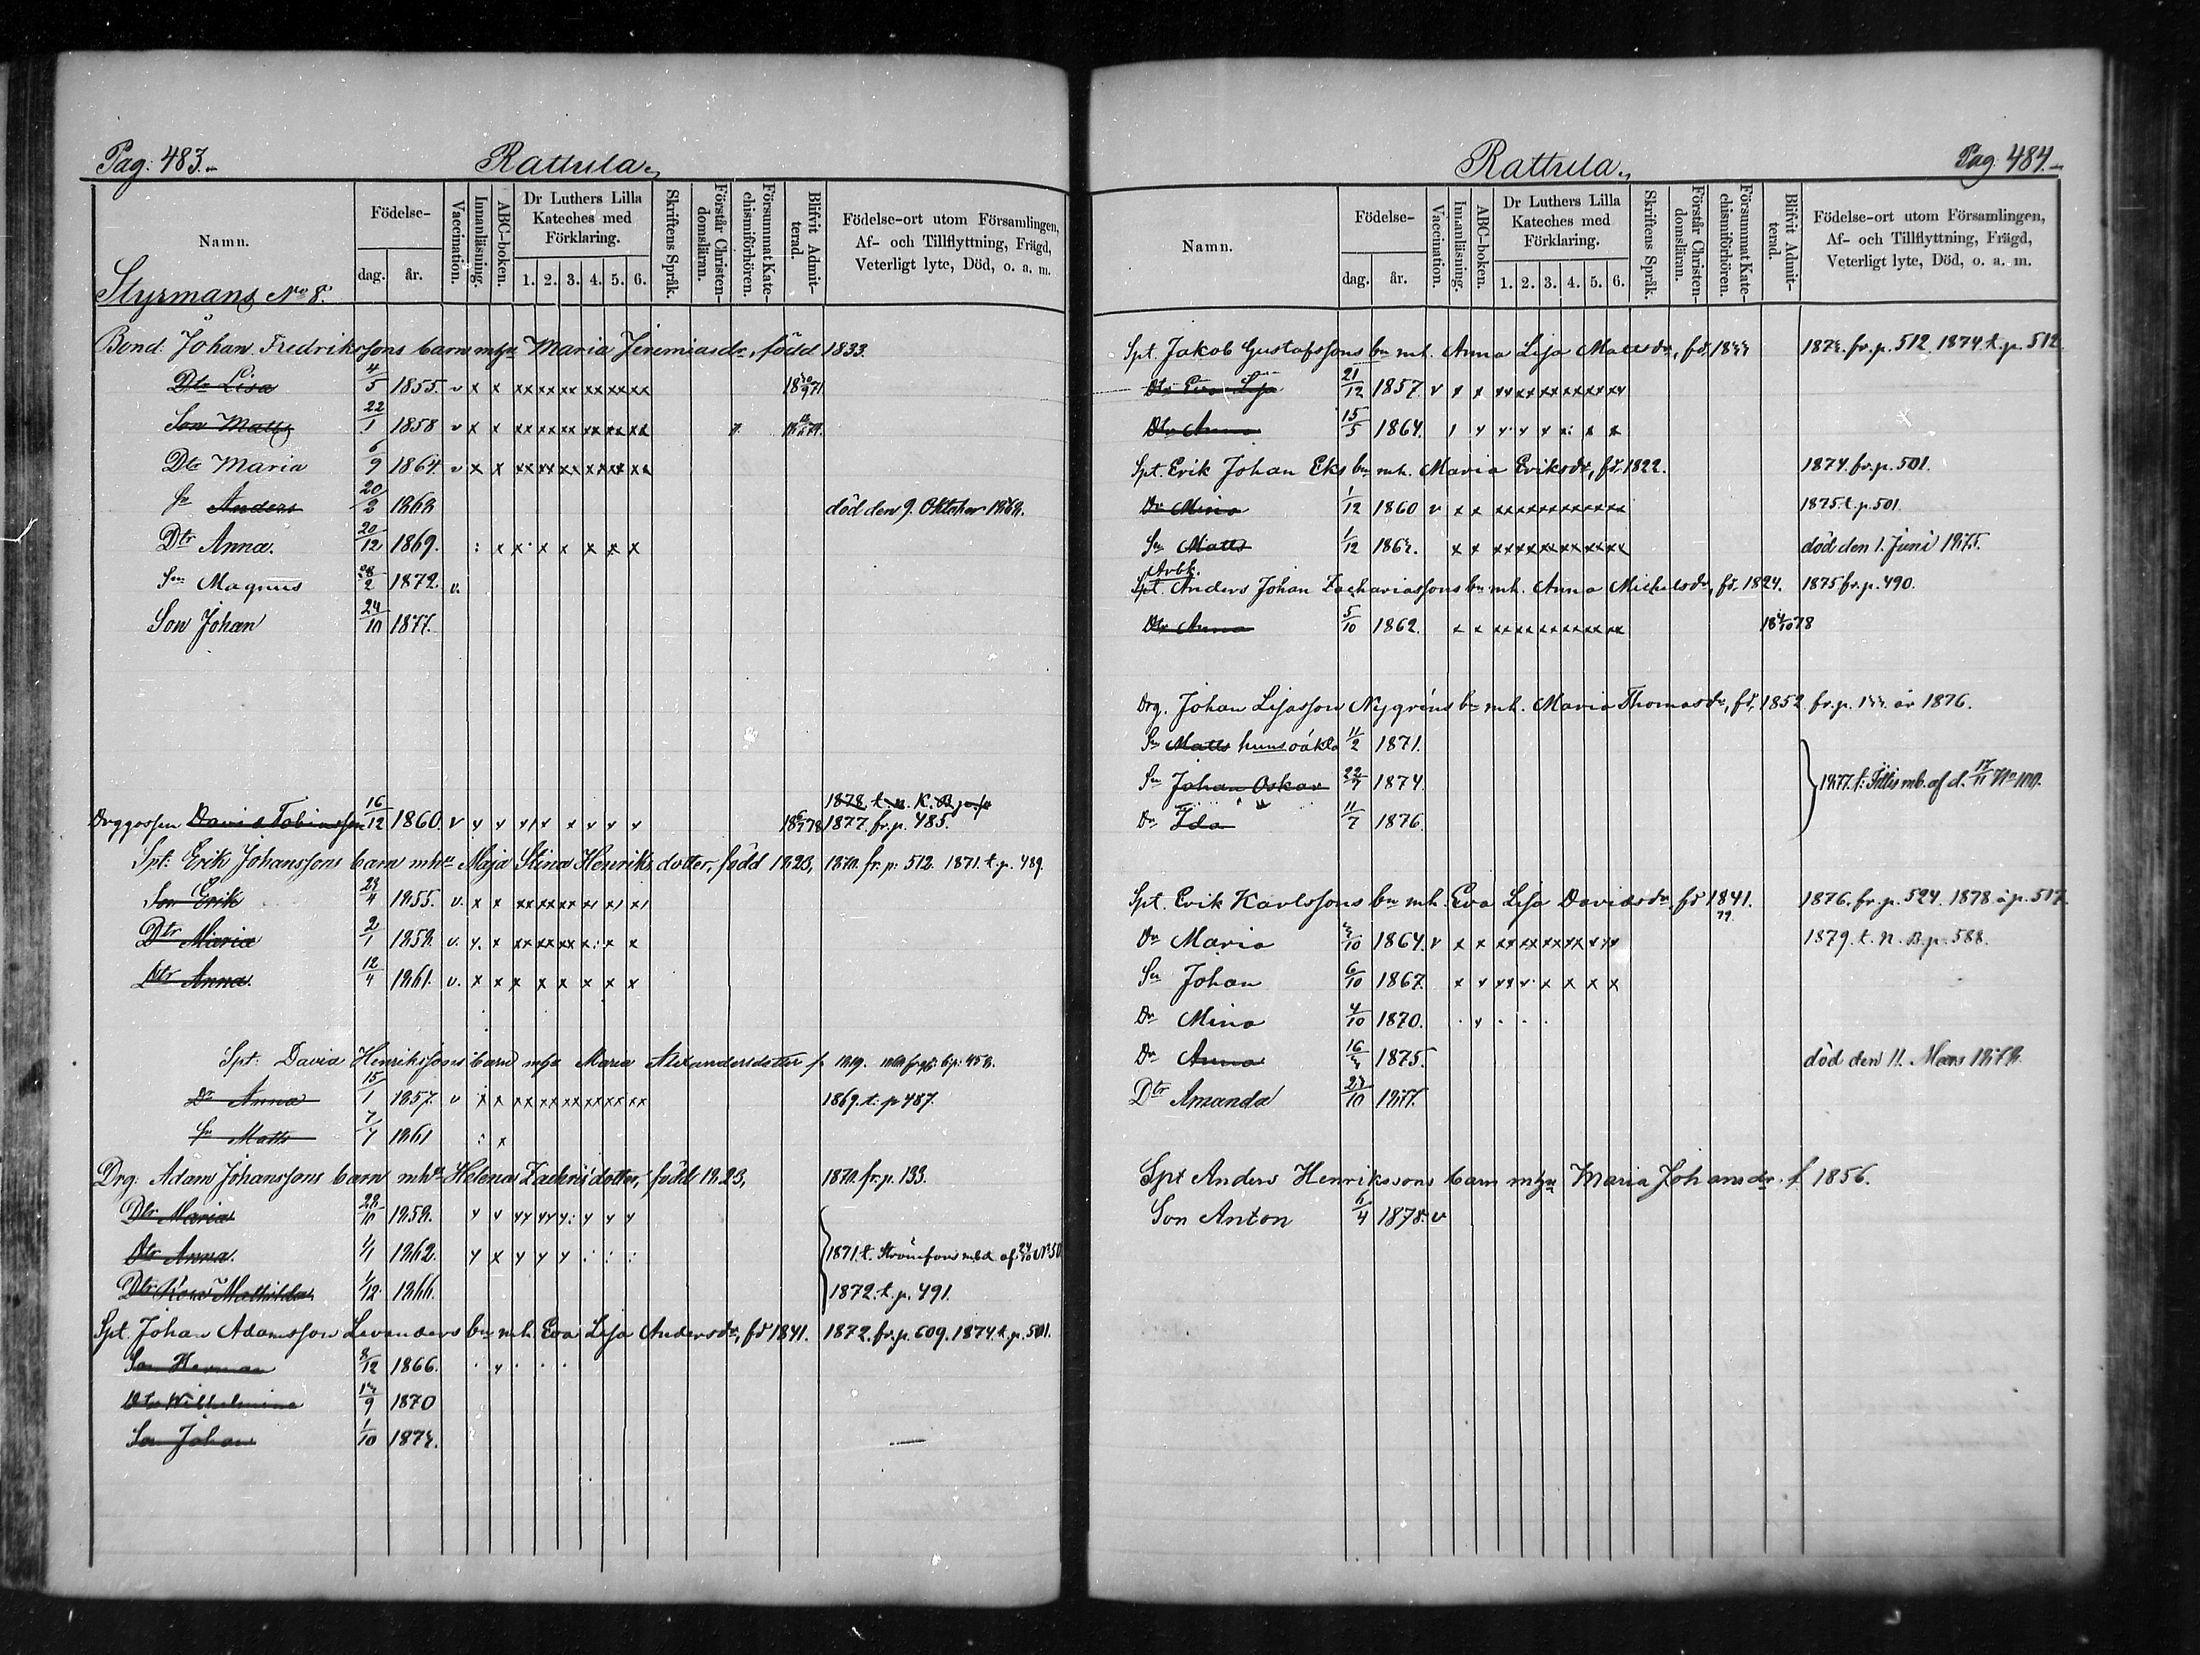 Pag: 483.
Rattula.
Namn.
Födelse-
dag. år.
Vaccination.
Innanläsning.
ABC-boken.
Dr Luthers Lilla Kateches med Förklaring.
1. 2. 3. 4. 5. 6.
Skriftens Språk.
Förstår Christendomsläran.
Försummat Katechismiförhören.
Blifvit Admitterad.
Födelse-ort utom Församlingen, Af- och Tillflyttning, Frägd, Veterligt lyte, Död, o. a. m.
Styrmans No 8.
Bond: Johan Fredrikssons barn m Maria Jeremiasdr, född 1833.
Dtr Lisa 4/5 1855. v x x xx xx xx xx xx xx
Son Matts 22/1 1858 v x x xx xx xx xx xx xx
Dtr Maria 6/9 1864 v x x xx xx xx xx xx xx
Sn Anders 20/2 1868 död den 9. Oktober 1868.
Dtr Anna. 20/12 1869. : x x x x x x x
Sn Magnus 28/2 1872. v.
Son Johan 24/10 1877.
1878 t. n. K. B.
Drggossen David Tobiasson 16/12 1860. v 1877. fr. p. 485.
Spt: Erik Johanssons barn mhu Maja Stina Henriksdotter, född 1823, 1870. fr. p: 512. 1871. t. p. 489.
Son Erik 29/4 1855. v. x x
Dtr Maria 2/1 1858. v.
Dtr Anna. 12/4 1861. v. x x x x x x x x
Spt: David Henrikssons barn Maria Alexandersdotter f. 1819.
Dr Anna 15/1 1857. v x x xx xx xx xx xx xx 1869. t. p 487.
Sn Matts 7/7 1861 : x
Drg: Adam Johanssons barn mhu Helena Zachrisdotter, född 1823, 1870. fr. p. 133.
Dtr Maria 28/10 1858.
Dtr Anna. 1/1 1862. 1871. t. Strömfors
Dtr Mathilda 1/12 1866. 1872. t. p. 491.
Spt. Johan Adamsson Levanders bn mh. Eva Lisa Andersdr, fd 1841. 1872. fr. p. 609. 1874. t. p. 501.
Son Herman 8/12 1866.
Dtr Wilhelmina 1870
Son Johan 1/10 1872.
Rattula.
Pag: 484.
Namn.
Födelse-
dag. år.
Vaccination.
Innanläsning.
ABC-boken.
Dr Luthers Lilla Kateches med Förklaring.
1. 2. 3. 4. 5. 6.
Skriftens Språk.
Förstår Christendomsläran.
Försummat Katechismiförhören.
Blifvit Admitterad.
Födelse-ort utom Församlingen, Af- och Tillflyttning, Frägd, Veterligt lyte, Död, o. a. m.
Spt. Jakob Gustafssons bn mh. Anna Lisa Mattsdr, fd. fr. p. 512. 1874. t. p. 512
Dtr Eva Lisa 21/12 1857. v x x xx xx xx xx xx xx
Dtr Anna 15/5 1864.
Spt. Erik Johan Eks bn mh. Maria Eriksdr, fd. 1822. 1874. fr. p. 501.
Dr Mina 1/12 1860 v x x xx xx xx xx xx xx 1875. t. p. 501.
Sn Matts 1/12 x x xx xx xx xx xx xx död den 1. Juni 1875.
Arbk.
Spt. Anders Johan Zachariassons bn mh. Anna Michelsdr, fd. 1824. 1875 fr. p. 490.
Dtr Anna 5/10 1862. x x xx xx xx xx xx xx
Drg. Johan Lisasson Nygréns bn mh. Maria Thomasdr, fd. 1852 fr. p. år 1876.
Sn Matts hens oäkta 11/2 1871.
Sn Johan Oskar 22/7 1874. 1877. t: mb. af d. 17/11 No 100.
Dr Ida 11/7 1876.
Spt. Erik Karlssons bn mh. Eva Lisa Davidsdr, fd 1841. 1876. fr. p. 524. 1878 å p. 517.
Dr Maria 1864. v 1879. t. N. B. p. 588.
Sn Johan 6/10 1867.
Dr Mina 4/10 1870.
Dr Anna 1875. död den 11. Mars 1878.
Dtr Amanda 1877.
Spt Anders Henrikssons barn Maria Johansdr. f 1856.
Son Anton 6/4 1878. v